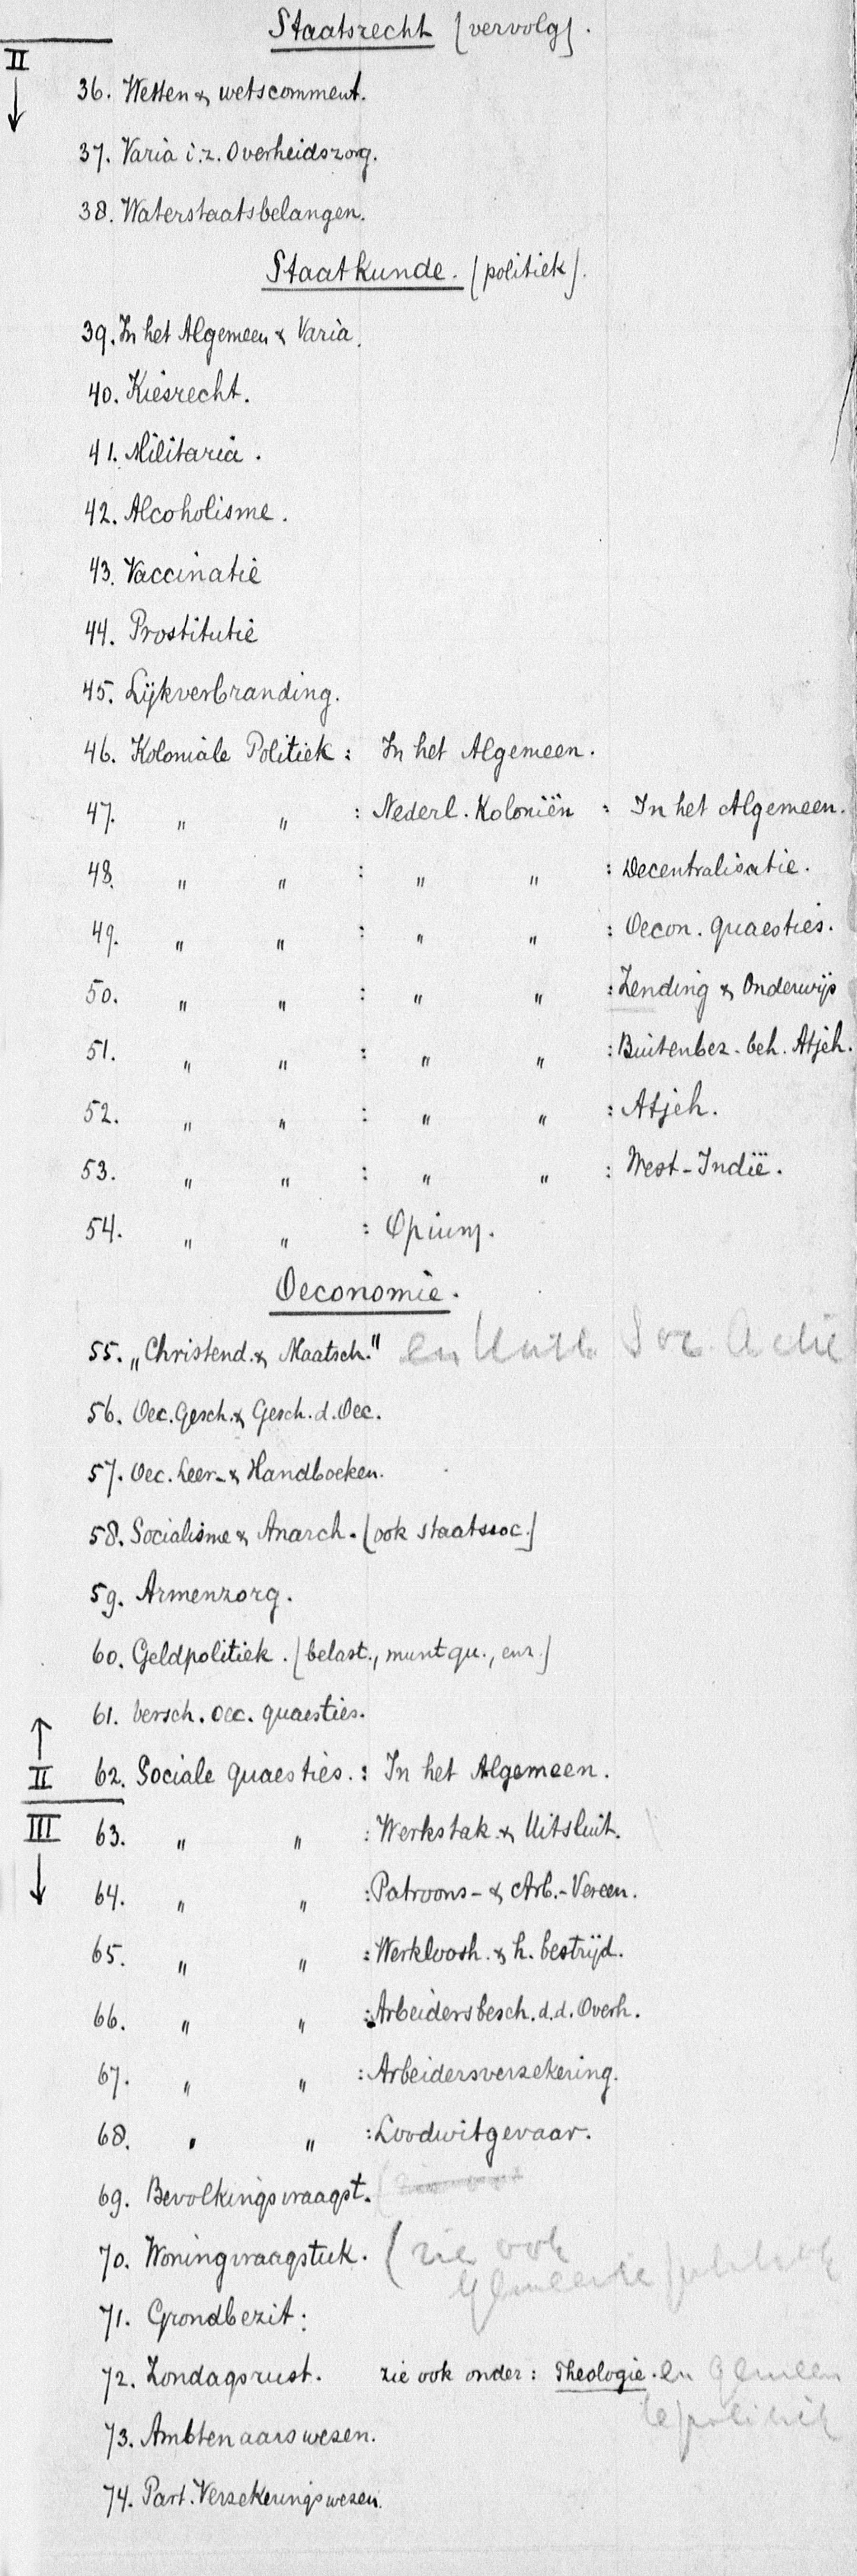 Staatsrecht (vervolg).
II
36. Wetten & wetscomment.
37. Varia i.z. Overheidszorg.
38. Waterstaatsbelangen.
Staatkunde. (politiek).
39. In het Algemeen & Varia.
40. Kiesrecht.
41. Militaria.
42. Alcoholisme.
43. Vaccinatie
44. Prostitutie
45. Lijkverbranding.
46. Koloniale Politiek: In het Algemeen.
47. " " : Nederl. Koloniën : In het Algemeen.
48. " " : " " : Decentralisatie.
49. " " : " " : Oecon. quaesties.
50. " " : " " : Zending & Onderwijs
51. " " : " " : Buitenbez. beh. Atjeh.
52. " " : " " : Atjeh.
53. " " : " " : West-Indië.
54. " " : Opium.
Oeconomie.
55. „Christend. & Maatsch." en Soc. Actie
56. Oec. Gesch. & Gesch. d. Oec.
57. Oec. Leer- & Handboeken.
58. Socialisme & Anarch. (ook staatssoc.)
59. Armenzorg.
60. Geldpolitiek. (belast., munt qu., enz.)
61. Versch. oec. quaesties.
II 62. Sociale quaesties. : In het Algemeen.
III 63. " " : Werkstak. & Uitsluit.
64. " " : Patroons- & Arb.-Vereen.
65. " " : Werkloosh. & h. bestrijd.
66. " " : Arbeidersbesch. d.d. Overh.
67. " " : Arbeidersverzekering.
68. " " : Loodwitgevaar.
69. Bevolkingsvraagst.
70. Woningvraagstuk. (zie ook
gemeente politiek
71. Grondbezit:
72. Zondagsrust. zie ook onder: Theologie. en gemeen
te politiek
73. Ambtenaarswezen.
74. Part. Verzekeringswezen.